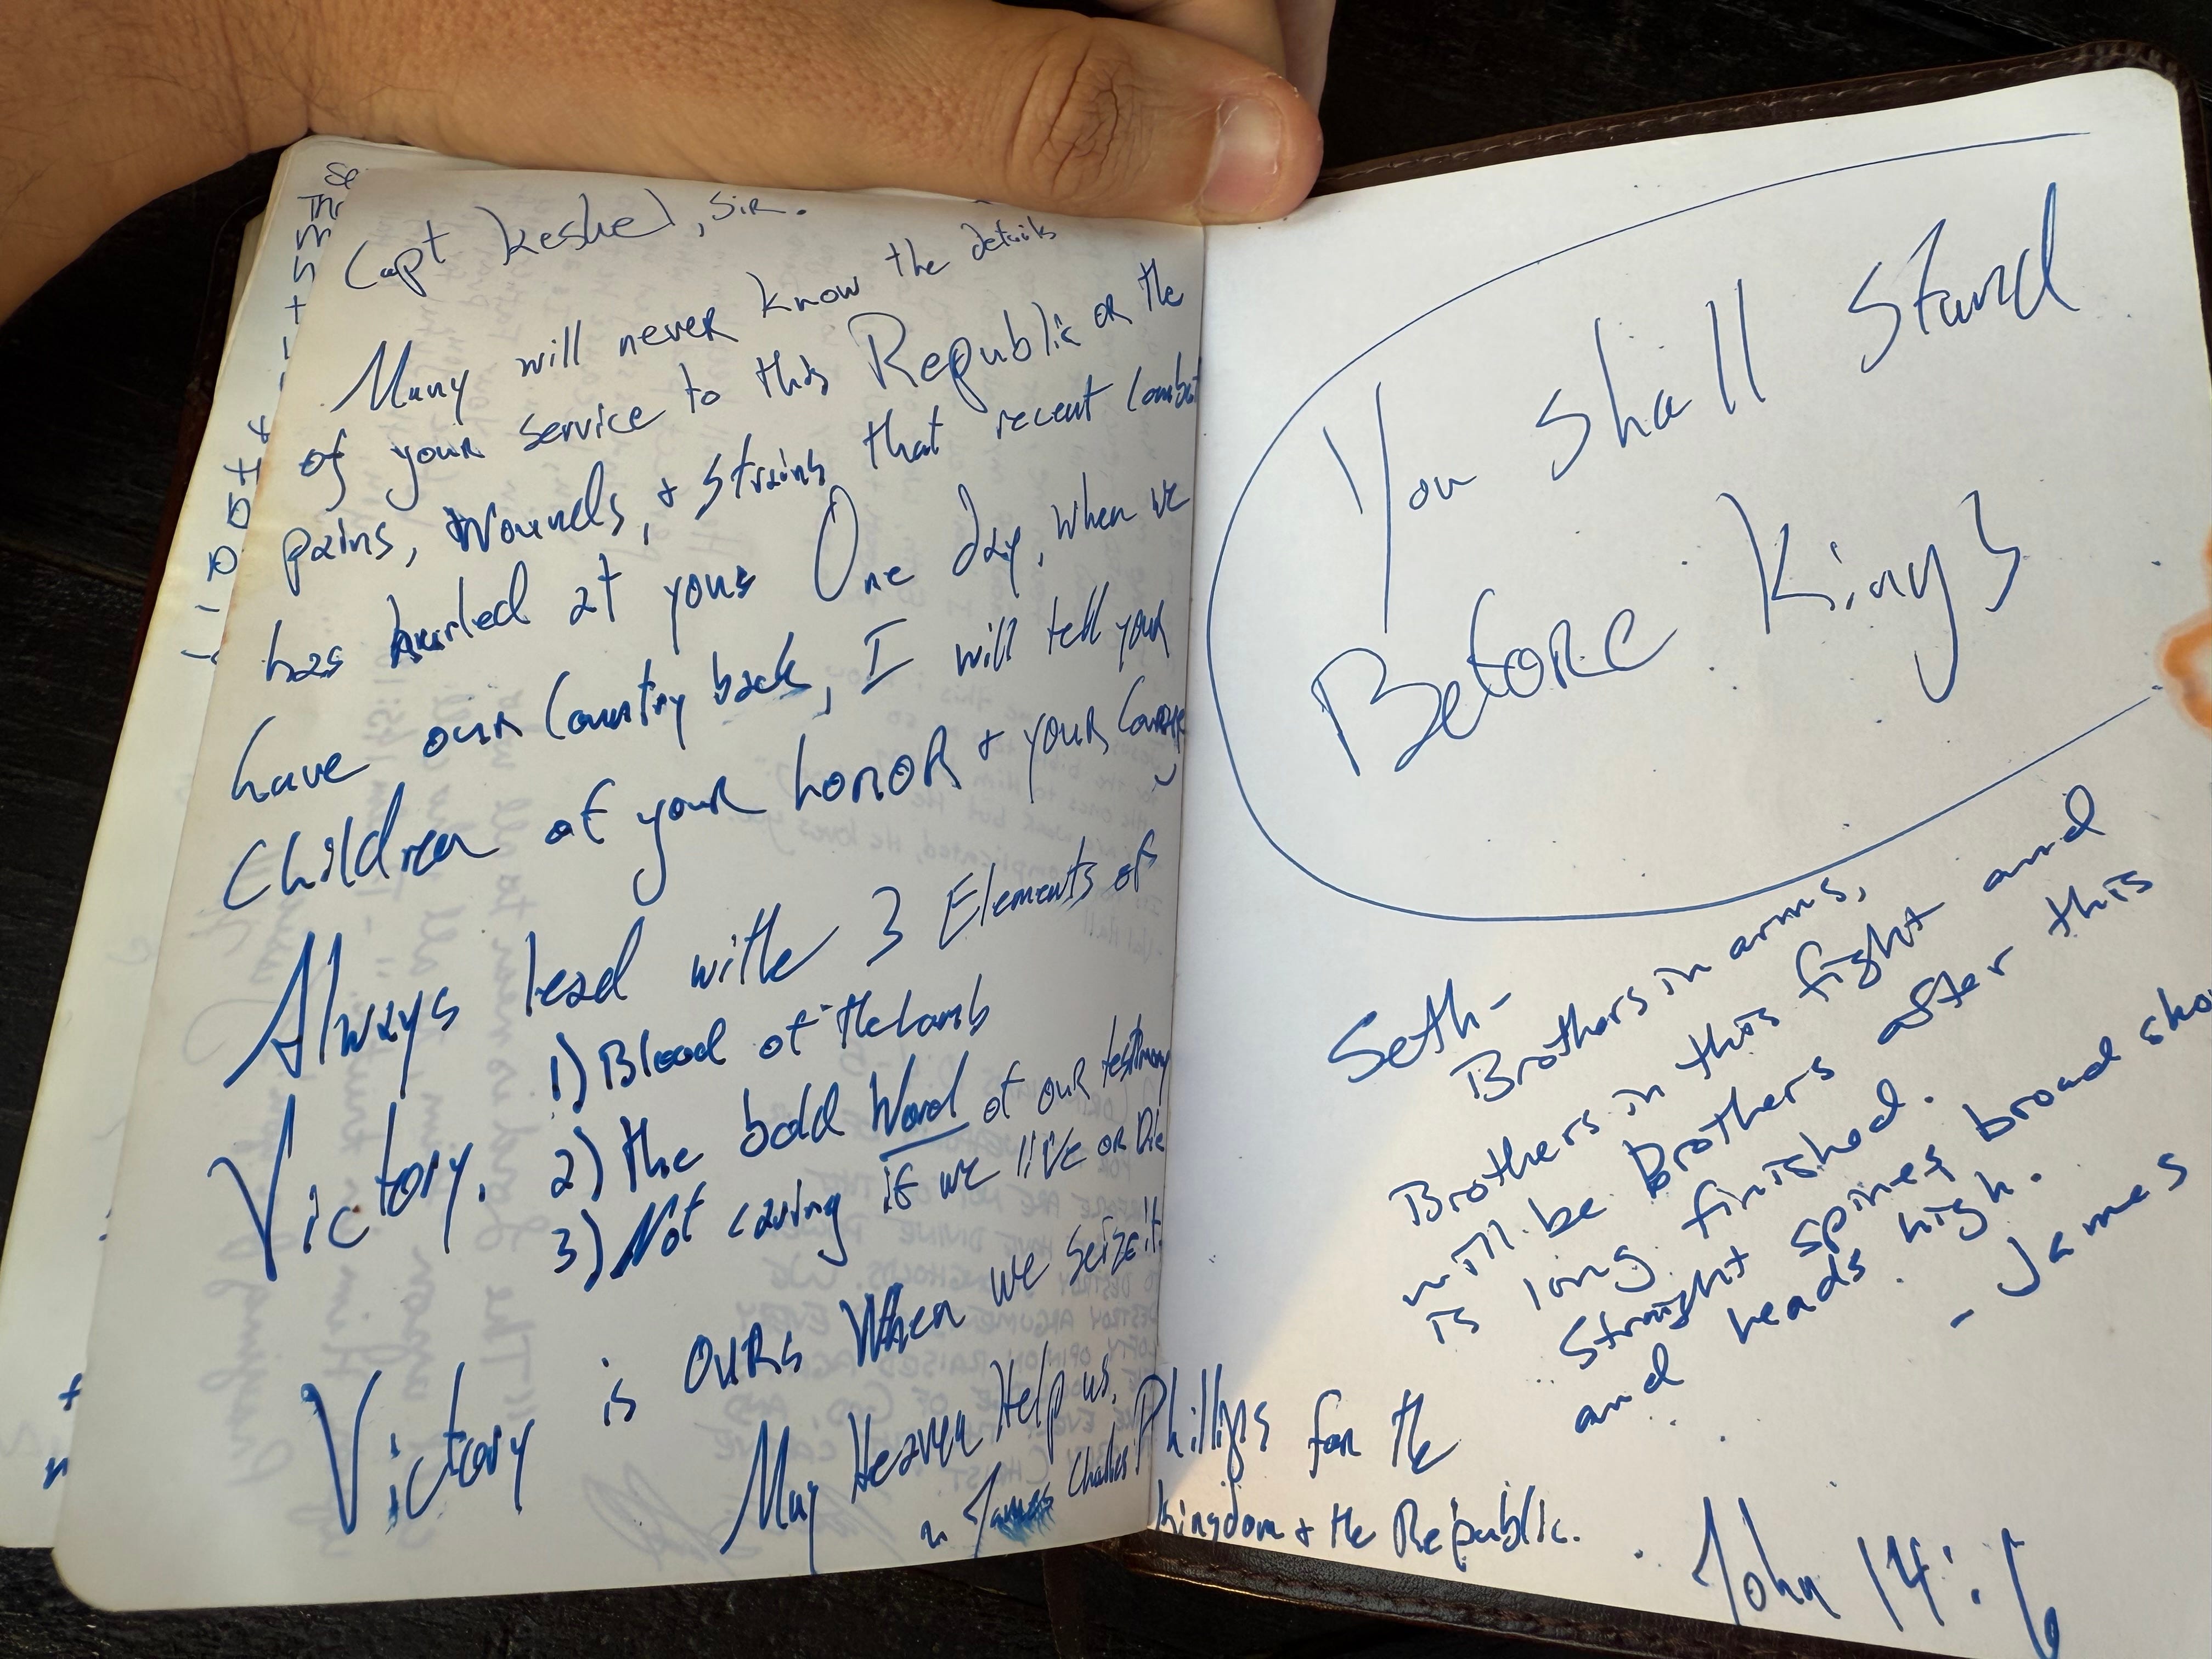 Capt Keshel, Sir.
Many will never know the details
of your service to this Republic or the
pains, wounds, + strains that recent combat
has hurled at you. One day, when we
have our Country back, I will tell your
Children of your honor + your courage
Always lead with 3 Elements of
Victory. 1) Blood of the Lamb
2) the bold Word of our testimony
3) Not caring if we live or Die
Victory is ours When we seize it.
May Heaven Help us.
James Charles Phillips for the
Kingdom + the Republic.
You shall stand
Before Kings
Seth-
Brothers in arms,
Brothers in this fight and
will be Brothers after this
is long finished.
Straight spines broad sho
and heads high.
- James
John 14:6